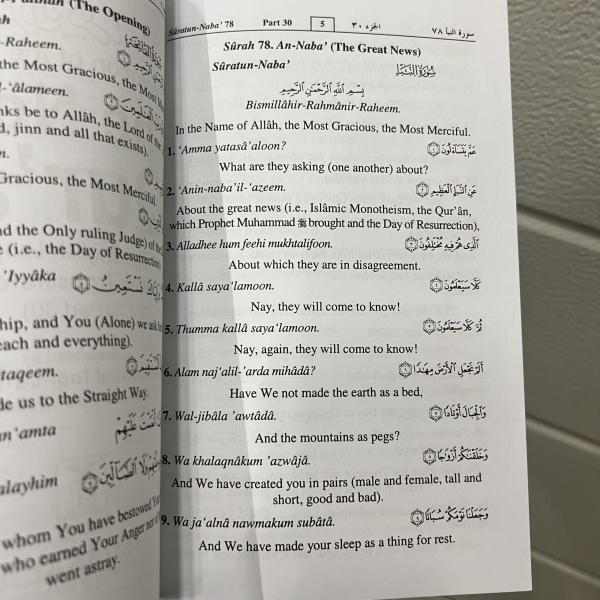 (The Opening)
-Raheem.
the Most Gracious, the Most
-‘âlameen.
nks be to Allâh, the Lord of the
d, jinn and all that exists).
m.
Gracious, the Most Merciful.
nd the Only ruling Judge) of
e (i.e., the Day of Resurrection
’Iyyâka
نَسْتَعِينُ
ship, and You (Alone) we ask
each and everything).
taqeem.
de us to the Straight Way.
an‘amta
أَنْعَمْتَ عَلَيْهِمْ
alayhim
وَلَا الضَّالِّينَ
whom You have bestowed Your
who earned Your Anger nor of
went astray.
Sûratun-Naba’ 78 Part 30 5 الجزء ٣٠ سورة النبأ ٧٨
Sûrah 78. An-Naba’ (The Great News)
Sûratun-Naba’ سُورَةُ النَّبَإِ
بِسْمِ اللَّهِ الرَّحْمَٰنِ الرَّحِيمِ
Bismillâhir-Rahmânir-Raheem.
In the Name of Allâh, the Most Gracious, the Most Merciful.
1. ‘Amma yatasâ’aloon? عَمَّ يَتَسَاءَلُونَ ١
What are they asking (one another) about?
2. ‘Anin-naba’il-‘azeem. عَنِ النَّبَإِ الْعَظِيمِ ٢
About the great news (i.e., Islâmic Monotheism, the Qur’ân,
which Prophet Muhammad ﷺ brought and the Day of Resurrection),
3. Alladhee hum feehi mukhtalifoon. الَّذِي هُمْ فِيهِ مُخْتَلِفُونَ ٣
About which they are in disagreement.
4. Kallâ saya‘lamoon. كَلَّا سَيَعْلَمُونَ ٤
Nay, they will come to know!
5. Thumma kallâ saya‘lamoon. ثُمَّ كَلَّا سَيَعْلَمُونَ ٥
Nay, again, they will come to know!
6. Alam naj‘alil-’arda mihâdâ? أَلَمْ نَجْعَلِ الْأَرْضَ مِهَادًا ٦
Have We not made the earth as a bed,
7. Wal-jibâla ’awtâdâ. وَالْجِبَالَ أَوْتَادًا ٧
And the mountains as pegs?
8. Wa khalaqnâkum ’azwâjâ. وَخَلَقْنَاكُمْ أَزْوَاجًا ٨
And We have created you in pairs (male and female, tall and
short, good and bad).
9. Wa ja‘alnâ nawmakum subâtâ. وَجَعَلْنَا نَوْمَكُمْ سُبَاتًا ٩
And We have made your sleep as a thing for rest.